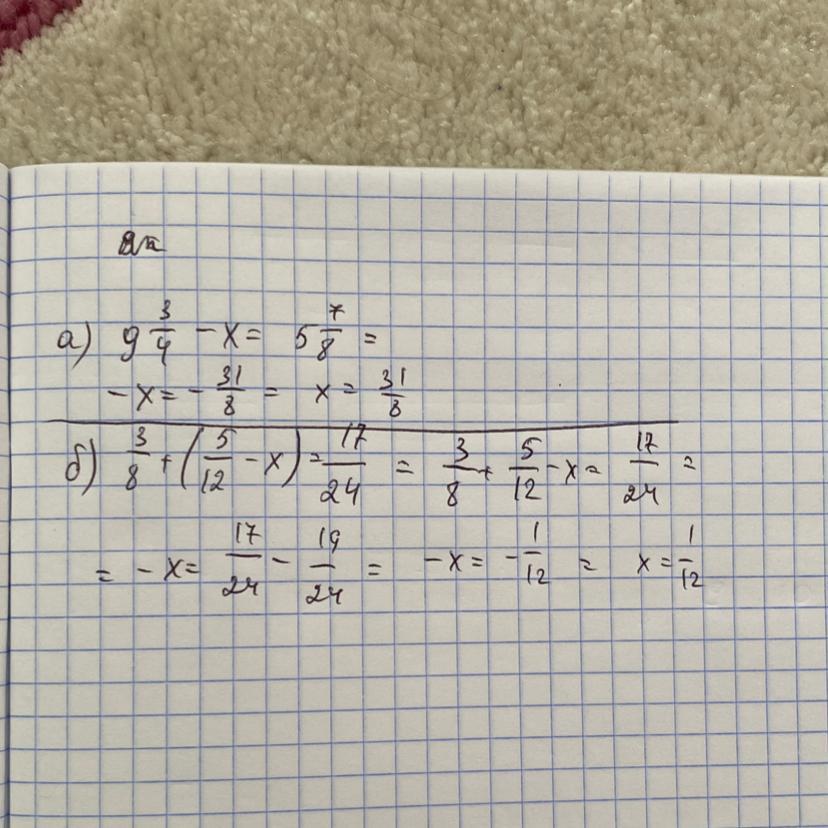 а) 9 3/4 - x = 5 7/8 =
- x = - 31/8 = x = 31/8
б) 3/8 + (5/12 - x) = 17/24 = 3/8 + 5/12 - x = 17/24 =
= - x = 17/24 - 19/24 = - x = - 1/12 = x = 1/12